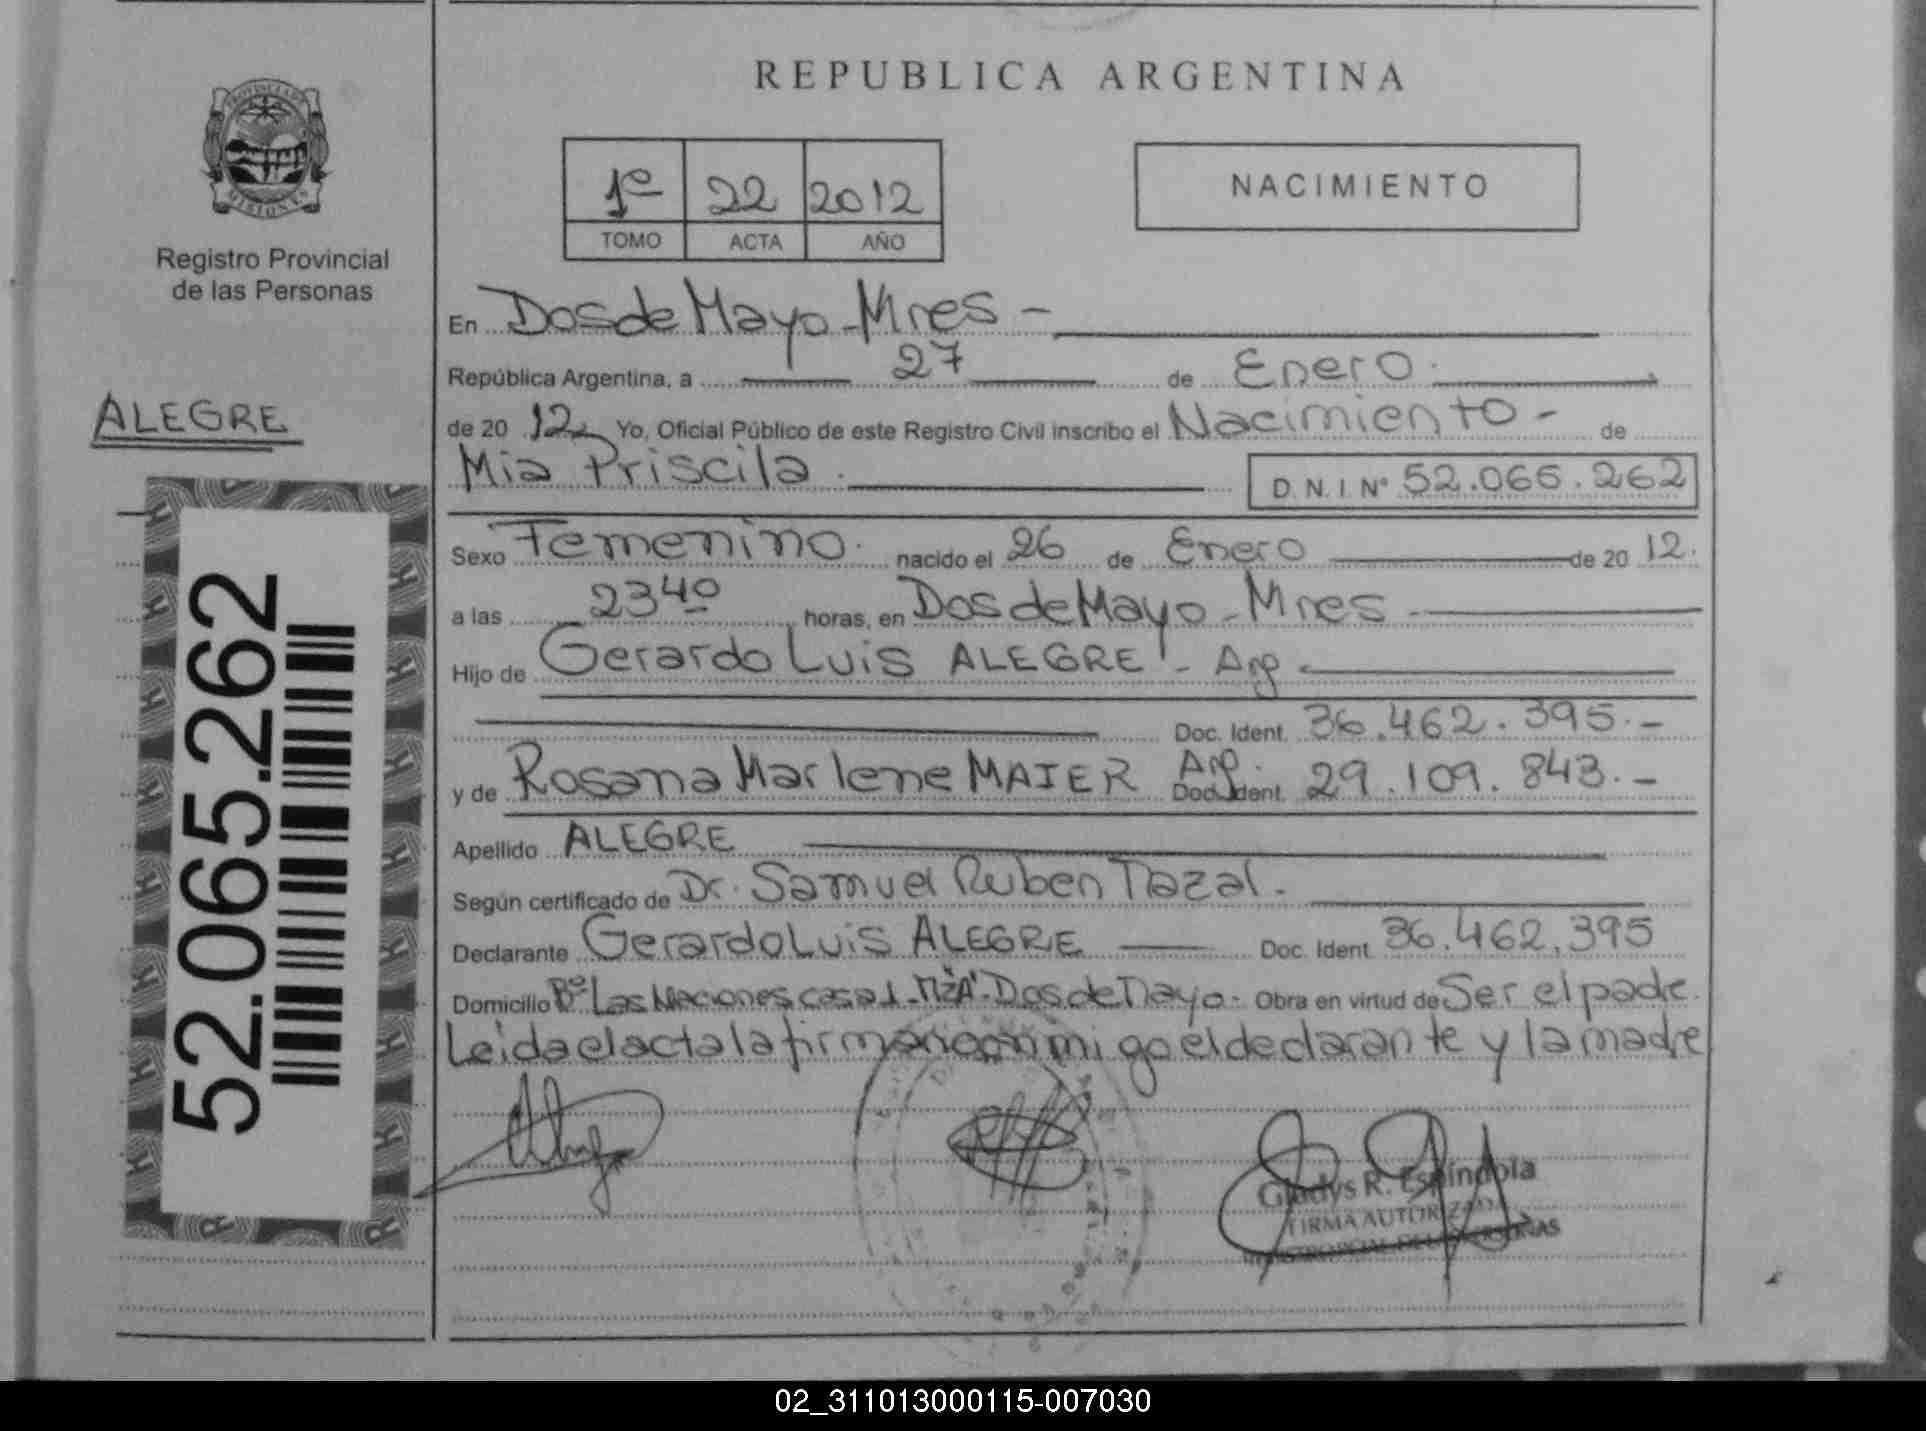 REPUBLICA ARGENTINA
PROVINCIA DE
MISIONES
Registro Provincial
de las Personas
1º 22 2012
TOMO ACTA AÑO
NACIMIENTO
En Dos de Mayo - Mnes -
República Argentina, a 27 de Enero.
ALEGRE
de 20 12 Yo, Oficial Público de este Registro Civil inscribo el Nacimiento - de
Mia Priscila. D.N.I. Nº 52.065.262
52.065.262
Sexo Femenino. nacido el 26 de Enero de 20 12.
a las 23 40 horas, en Dos de Mayo - Mnes -
Hijo de Gerardo Luis ALEGRE - Arg
Doc. Ident. 36.462.395.-
y de Rosana Marlene MAIER Arg. Doc. Ident. 29.109.843.-
Apellido ALEGRE
Según certificado de Dr. Samuel Ruben Nazal.
Declarante Gerardo Luis ALEGRE Doc. Ident. 36.462.395
Domicilio Bº Las Naciones casa 1 - MZ"A" - Dos de Mayo - Obra en virtud de Ser el padre.
Leida el acta la firman conmigo el declarante y la madre
Gladys R. Espindola
FIRMA AUTORIZADA
02_311013000115-007030